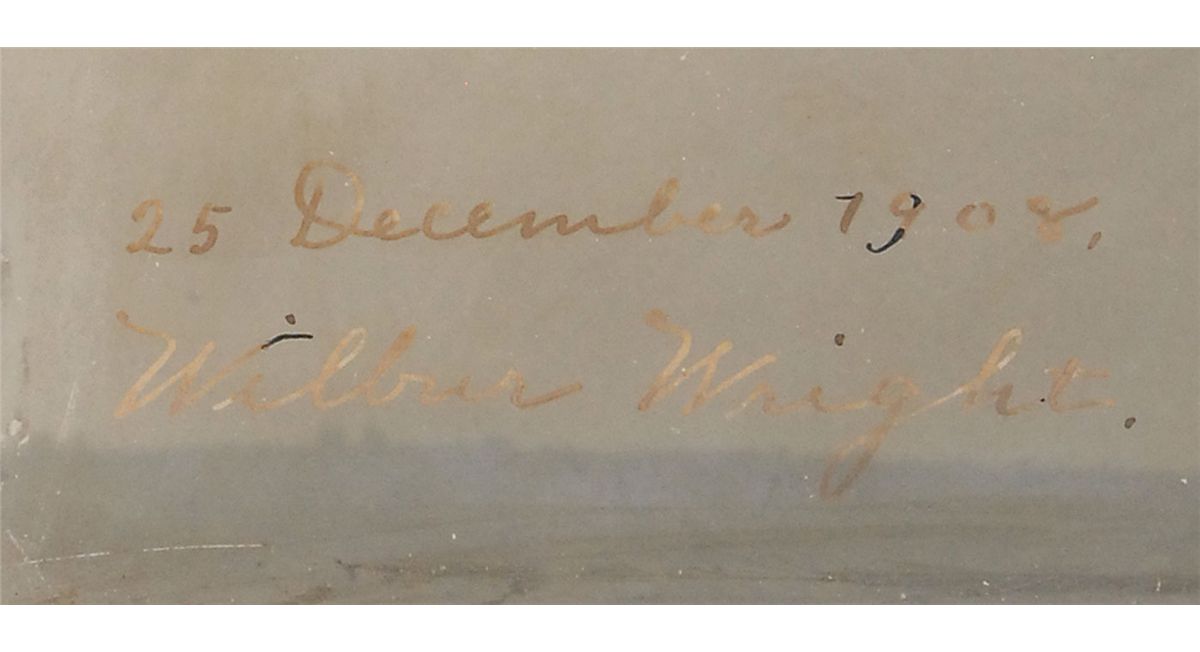 25 December 1908.
Wilbur Wright.